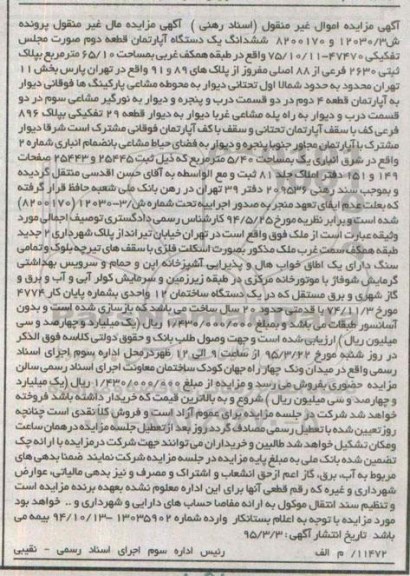 آگهی مزایده اموال غیر منقول (اسناد رهنی ) آگهی مزایده مال غیر منقول پرونده
ش۱۲۰۳۰/۳ و ۸۲۰۰۱۷۰ ششدانگ یک دستگاه آپارتمان قطعه دوم صورت مجلس
تفکیکی ۴۷۴۷۰-۷۵/۱۰/۱۱ واقع در طبقه همکف غربی بمساحت ۶۵/۱۰ مترمربع بپلاک
ثبتی ۲۶۳۰ فرعی از ۸۸ اصلی مفروز از پلاک های ۸۹ و ۹۱ واقع در تهران پارس بخش ۱۱
تهران محدود به حدود شمالا اول تحتانی دیوار به محوطه مشاعی پارکینگ ها فوقانی دیوار
به آپارتمان قطعه ۴ دوم در دو قسمت درب و پنجره و دیوار به نورگیر مشاعی سوم در دو
قسمت درب و دیوار به راه پله مشاعی غربا دیوار به دیوار قطعه ۲۹ تفکیکی بپلاک ۸۹۶
فرعی کف با سقف آپارتمان تحتانی و سقف با کف آپارتمان فوقانی مشترک است شرقا دیوار
مشترک با آپارتمان مجاور جنوبا پنجره و دیوار به فضای حیاط مشاعی بانضمام انباری شماره ۲
واقع در شرق انباری یک بمساحت ۵/۴۰ مترمربع که ذیل ثبت ۲۵۴۴۵ و ۲۵۴۴۳ صفحات
۱۴۹ و ۱۵۱ دفتر املاک جلد ۸۱ ثبت و مع الواسطه به آقای حسن اقدسی منتقل گردیده
و بموجب سند رهنی ۲۰۹۵۳۶ دفتر ۳۹ تهران در رهن بانک ملی شعبه حافظ قرار گرفته
که بعلت عدم ایفای تعهد منجر به صدور اجراییه تحت شماره ش/۳-۱۲۰۳۰ (۸۲۰۰۱۷۰)
شده است و برابر نظریه مورخ ۹۴/۵/۲۵ کارشناس رسمی دادگستری توصیف اجمالی مورد
وثیقه عبارت است از ملک فوق واقع است در تهران خیابان تیرانداز پلاک شهرداری ۲ جدید
طبقه همکف سمت غرب ملک مذکور بصورت اسکلت فلزی با سقف های تیرچه بلوک و نمای
سنگ دارای یک اطاق خواب هال و پذیرایی آشپزخانه اپن و حمام و سرویس بهداشتی
گرمایش شوفاژ با موتورخانه مرکزی در طبقه زیرزمین و سرمایش کولر آبی و آب و برق و
گاز شهری و برق مستقل که در یک دستگاه ساختمان ۱۲ واحدی بشماره پایان کار ۴۷۷۴
مورخ ۷۴/۱۱/۳ با قدمتی حدود ۲۰ سال ساخت می باشد که بازسازی شده است و بدون
آسانسور طبقات می باشد و بمبلغ ۱/۴۳۰/۰۰۰/۰۰۰ ریال (یک میلیارد و چهارصد و سی
میلیون ریال ) ارزیابی شده است و جهت وصول طلب بانک و حقوق دولتی کلاسه فوق الذکر
در روز شنبه مورخ ۹۵/۳/۲۲ از ساعت ۹ الی ۱۲ ظهردرمحل اداره سوم اجرای اسناد
رسمی واقع در میدان ونک چهار راه جهان کودک ساختمان معاونت اجرای اسناد رسمی سالن
مزایده حضوری بفروش می رسد و مزایده از مبلغ ۱/۴۳۰/۰۰۰/۰۰۰ ریال (یک میلیارد
و چهارصد و سی میلیون ریال ) شروع و به بالاترین قیمت که خریدار داشته باشد فروخته
خواهد شد شرکت در جلسه مزایده برای عموم آزاد است و فروش کلا نقدی است چنانچه
روز تعیین شده با تعطیل رسمی مصادف گردد روز بعد ازتعطیل جلسه مزایده درهمان ساعت
ومکان تشکیل خواهد شد طالبین و خریداران می توانند جهت شرکت درمزایده با ارائه چک
تضمین شده بانک ملی به مبلغ پایه مزایده در جلسه مزایده شرکت نمایند ضمنا بدهی های
مربوط به آب، برق، گاز اعم ازحق انشعاب و اشتراک و مصرف و نیز بدهی مالیاتی، عوارض
شهرداری و غیره که رقم قطعی آنها برای این اداره معلوم نشده بعهده برنده مزایده است
و تنظیم سند انتقال موکول به ارائه مفاصا حساب های دارایی و شهرداری و .. خواهد بود
مورد مزایده با توجه به اعلام بستانکار وارده شماره ۱۳۰۳۵۹۰۲ -۹۴/۱۰/۱۳ بیمه می
باشد تاریخ انتشار آگهی : ۹۵/۳/۳
۱۱۴۷۲/ م الف رئیس اداره سوم اجرای اسناد رسمی - نقیبی